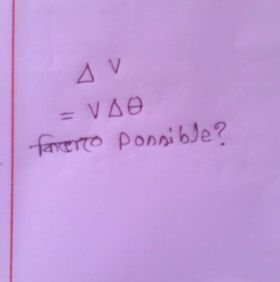 Δ V
= V Δ θ
কিভাবে possible?